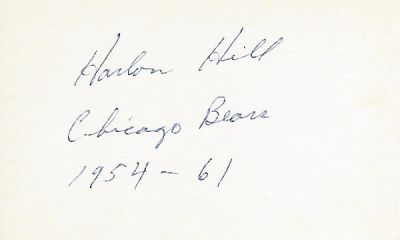 Harlon Hill
Chicago Bears
1954 - 61